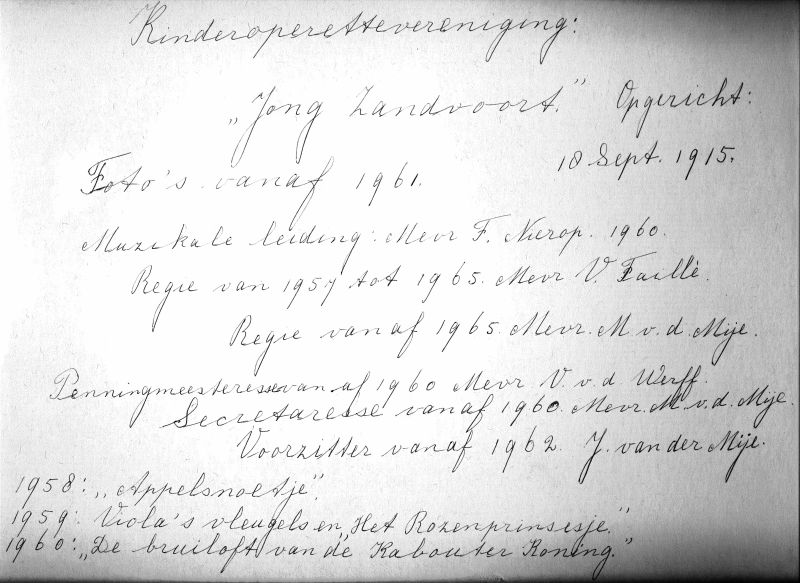 Kinderoperettevereniging:
„Jong Zandvoort." Opgericht:
18 Sept. 1915.
Foto's vanaf 1961.
Muzikale leiding: Mevr F. Nierop. 1960.
Regie van 1957 tot 1965. Mevr V. Faillé.
Regie vanaf 1965. Mevr. M. v. d. Mije.
Penningmeesteresse van af 1960 Mevr. V. v. d. Werff.
Secretaresse vanaf 1960. Mevr. M. v. d. Mije.
Voorzitter vanaf 1962. J. van der Mije.
1958: „Appelsnoetje".
1959: Viola's vleugels en „Het Rozenprinsesje."
1960: „De bruiloft van de Kabouter Koning."